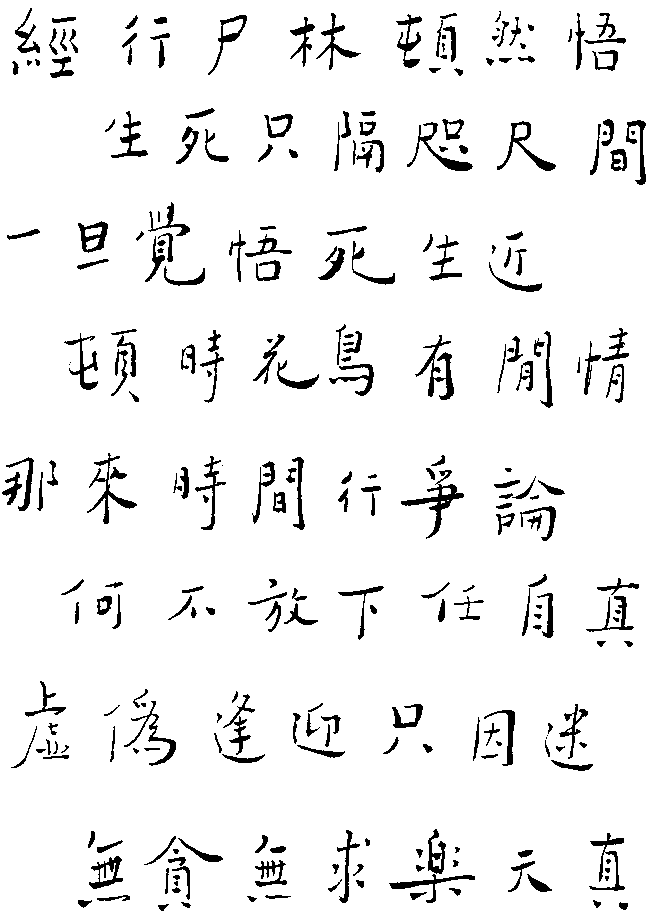 經行尸林頓然悟
生死只隔咫尺間
一旦覺悟死生近
頓時花鳥有閒情
那來時間行爭論
何不放下任自真
虛偽逢迎只因迷
無貪無求樂天真